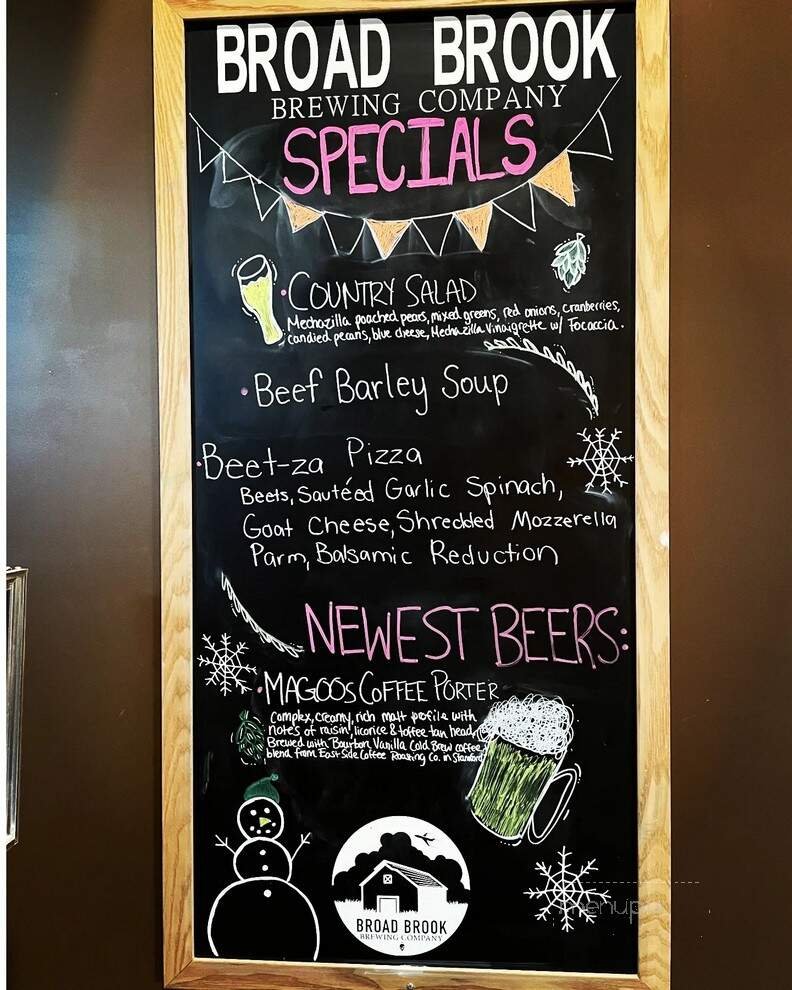 BROAD BROOK
BREWING COMPANY
SPECIALS
COUNTRY SALAD
Mechazilla poached pears, mixed greens, red onions, cranberries,
candied pecans, blue cheese, Mechazilla Vinaigrette w/ Focaccia.
Beef Barley Soup
Beet-za Pizza
Beets, Sautéed Garlic Spinach,
Goat Cheese, Shredded Mozzerella
Parm, Balsamic Reduction
NEWEST BEERS:
MAGOOS COFFEE PORTER
Complex, creamy, rich malt profile with
notes of raisin, licorice & toffee tan head,
Brewed with Bourbon Vanilla Cold Brew coffee
blend from East Side Coffee Roasting Co. in Stamford
BROAD BROOK
BREWING COMPANY